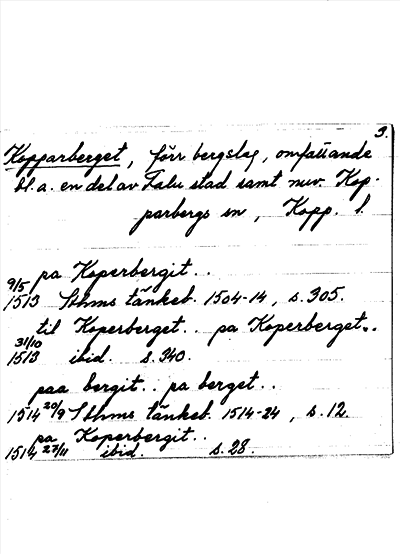 3.
Kopparberget, förr bergslag, omfattande
bl. a. en del av Falu stad samt nuv. Kop-
parbergs sn, Kopp. l.
pa Koperbergit..
9/5
1513 Sthms tänkeb. 1504-14, s. 305.
til Koperberget.. pa Koperberget..
31/10
1513 ibid. s. 340.
paa bergit.. pa berget..
1514 20/9 Sthms tänkeb. 1514-24, s. 12.
pa Koperbergit..
1514 27/11 ibid. s. 28.